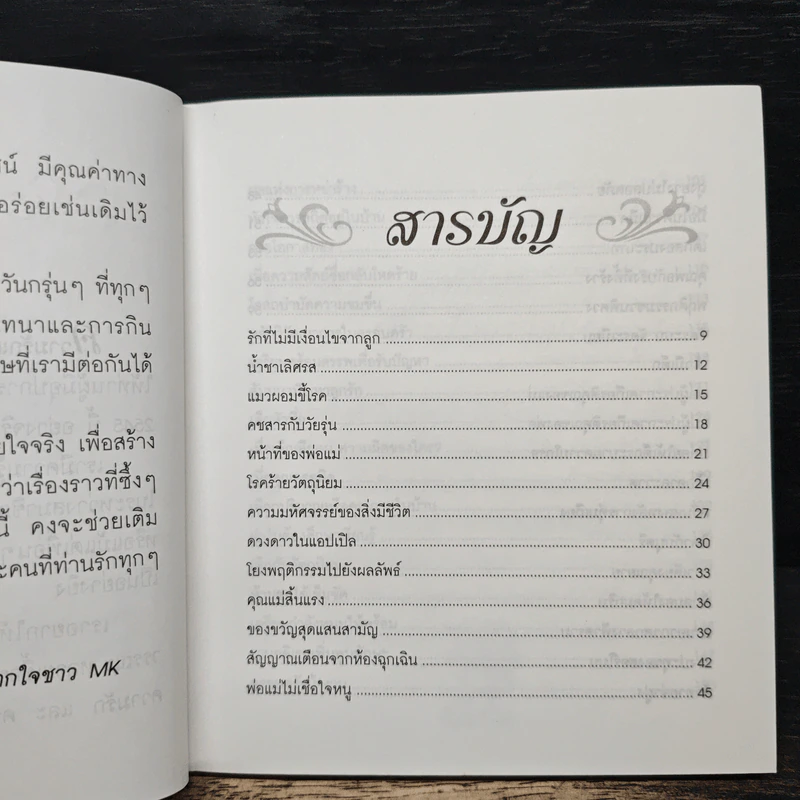 มีคุณค่าทาง
อร่อยเช่นเดิมไว้
วันกรุ่นๆ ที่ทุกๆ
ทนาและการกิน
ที่เรามีต่อกันได้
ใจจริง เพื่อสร้าง
ว่าเรื่องราวที่ซึ้งๆ
นี้ คงจะช่วยเติม
คนที่ท่านรักทุกๆ
กใจชาว MK
สารบัญ
รักที่ไม่มีเงื่อนไขจากลูก 9
น้ำชาเลิศรส 12
แมวผอมขี้โรค 15
คชสารกับวัยรุ่น 18
หน้าที่ของพ่อแม่ 21
โรคร้ายวัตถุนิยม 24
ความมหัศจรรย์ของสิ่งมีชีวิต 27
ดวงดาวในแอปเปิล 30
โยงพฤติกรรมไปยังผลลัพธ์ 33
คุณแม่สิ้นแรง 36
ของขวัญสุดแสนสามัญ 39
สัญญาณเตือนจากห้องฉุกเฉิน 42
พ่อแม่ไม่เชื่อใจหนู 45